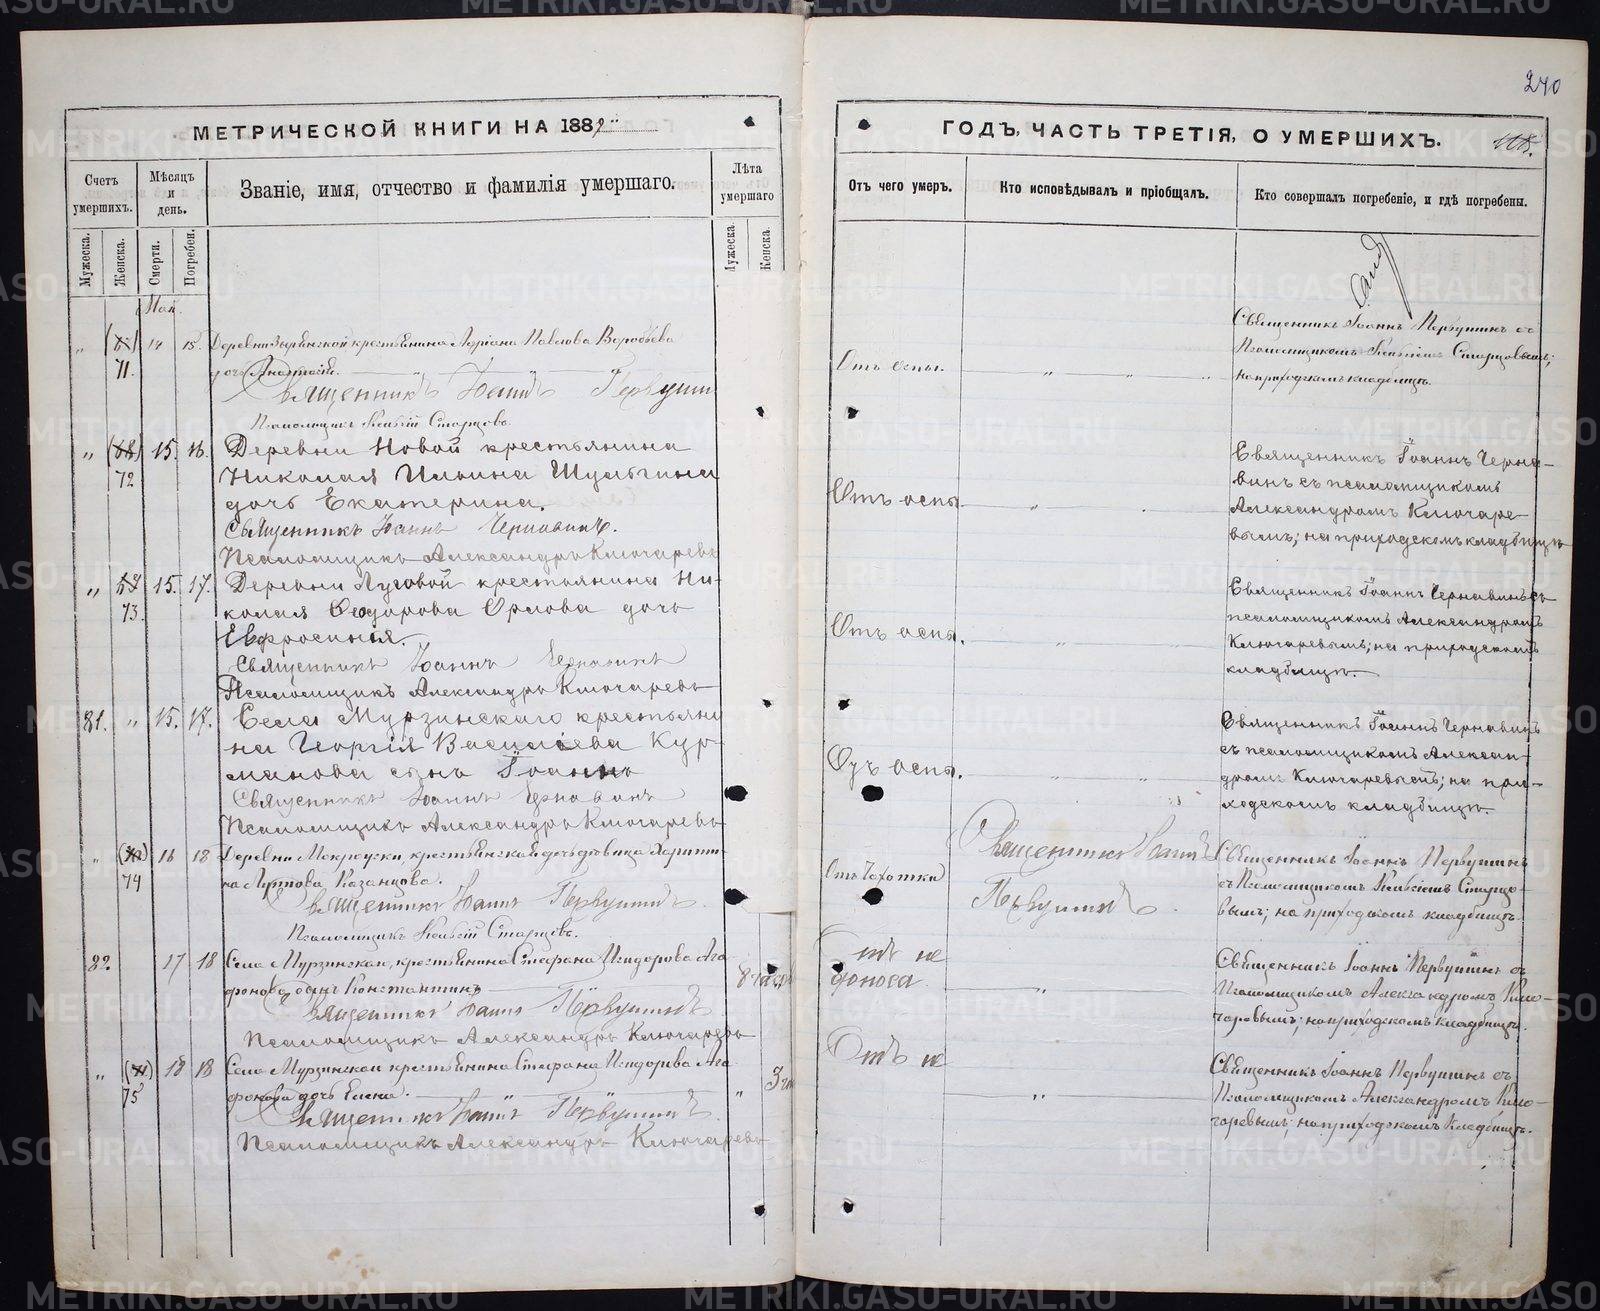 240
МЕТРИЧЕСКОЙ КНИГИ НА 1882
ГОДЪ, ЧАСТЬ ТРЕТІЯ, О УМЕРШИХЪ.
Счетъ умершихъ.
Мѣсяцъ и день.
Званіе, имя, отчество и фамилія умершаго.
Лѣта умершаго
Мужеска.
Женска.
Смерти.
Погребен.
Мужеска.
Женска.
Отъ чего умеръ.
Кто исповѣдывалъ и пріобщалъ.
Кто совершалъ погребеніе, и гдѣ погребены.
Май.
71. 14 15. Деревни Зырянской крестьянина Адріана Павлова Воробьева
дочь Анастасія.
Священникъ Іоаннъ Первушин
Псаломщикъ Старцовъ.
Отъ оспы.
Священникъ Іоаннъ Первушинъ съ
Псаломщикомъ Старцовымъ;
на приходскомъ кладбищѣ.
„ 72 15. 16. Деревни Новой крестьянина
Николая Ильина Шульгина
дочь Екатерина.
Священникъ Іоаннъ Чернавинъ.
Псаломщикъ Александръ Ключаревъ
Отъ оспы.
Священникъ Іоаннъ Черна-
винъ съ псаломщикомъ
Александромъ Ключаре-
вымъ; на приходскомъ кладбищѣ
„ 73. 15. 17. Деревни Луговой крестьянина Ни-
колая Ѳедорова Орлова дочь
Евфросинія.
Священникъ Іоаннъ Чернавинъ
Псаломщикъ Александръ Ключаревъ
Отъ оспы.
Священникъ Іоаннъ Чернавинъ съ
псаломщикомъ Александромъ
Ключаревымъ; на приходскомъ
кладбищѣ.
81. „ 15. 17. Села Мурзинскаго крестьяни
на Георгія Васильева Кур-
манова сынъ Іоаннъ
Священникъ Іоаннъ Чернавинъ
Псаломщикъ Александръ Ключаревъ
Отъ оспы.
Священникъ Іоаннъ Чернавинъ
съ псаломщикомъ Алексан-
дромъ Ключаревымъ; на при-
ходскомъ кладбищѣ.
74 16 18 Деревни крестьянская дочь дѣвица Харити-
на Казанцова.
Священникъ Іоаннъ Первушинъ.
Псаломщикъ Старцовъ.
Отъ чахотки
Священникъ Іоаннъ
Первушинъ
Священникъ Іоаннъ Первушинъ
съ Псаломщикомъ Старцо-
вымъ; на приходскомъ кладбищѣ.
82. 17 18 Села Мурзинскаго, крестьянина Стефана Исидорова Ага
фонова сынъ Константинъ
Священникъ Іоаннъ Первушинъ
Псаломщикъ Александръ Ключаревъ
Отъ не
доноса
Священникъ Іоаннъ Первушинъ съ
Псаломщикомъ Александромъ Клю-
чаревымъ; на приходскомъ кладбищѣ.
„ 75 18 18 Села Мурзинскаго крестьянина Стефана Исидорова Ага
фонова дочь Елена.
Священникъ Іоаннъ Первушинъ.
Псаломщикъ Александръ Ключаревъ
Отъ не
Священникъ Іоаннъ Первушинъ съ
Псаломщикомъ Александромъ Клю-
чаревымъ; на приходскомъ кладбищѣ.
METRIKI.GASO-URAL.RU